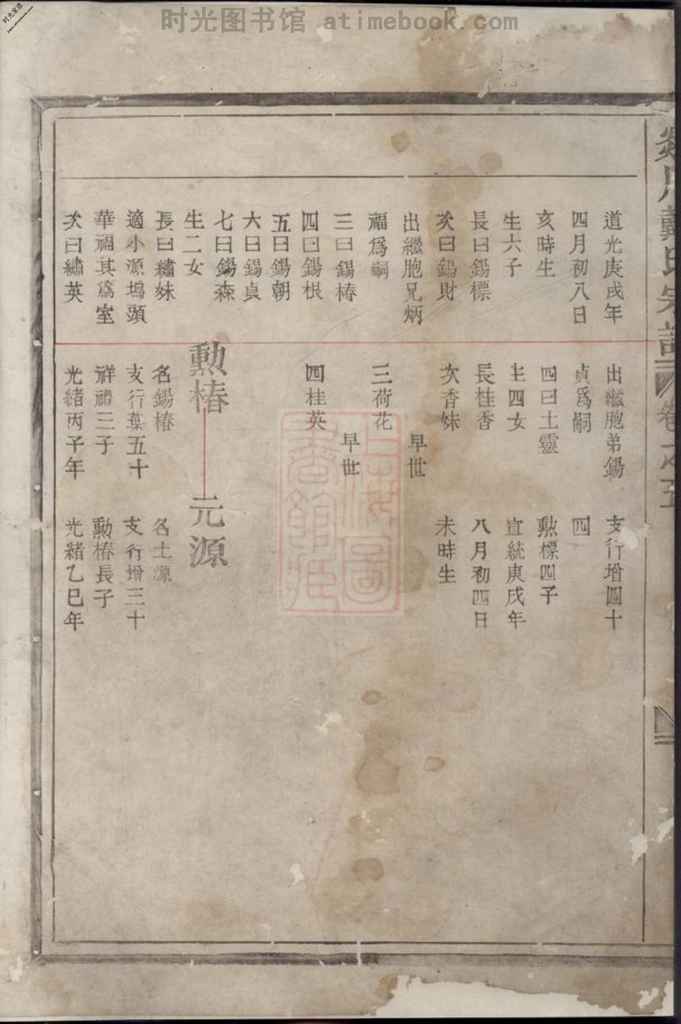 时光图书馆 atimebook.com
戴氏宗譜
卷之五
道光庚戌年
四月初八日
亥時生
生六子
長曰錫標
次曰錫財
出繼胞兄炳
福爲嗣
三曰錫椿
四曰錫根
五曰錫朝
六曰錫貞
七曰錫森
生二女
長曰繡妹
適小源塢頭
華禍其爲室
次曰繡英
出繼胞弟錫
貞爲嗣
四曰土靈
生四女
長桂香
次香妹
早世
三荷花
早世
四桂英
勲椿
名錫椿
支行葉五十
祥禮三子
光緒丙子年
支行增四十
四
勲標四子
宣統庚戌年
八月初四日
未時生
元源
名土源
支行增三十
勲椿長子
光緒乙巳年
上海圖
書館藏